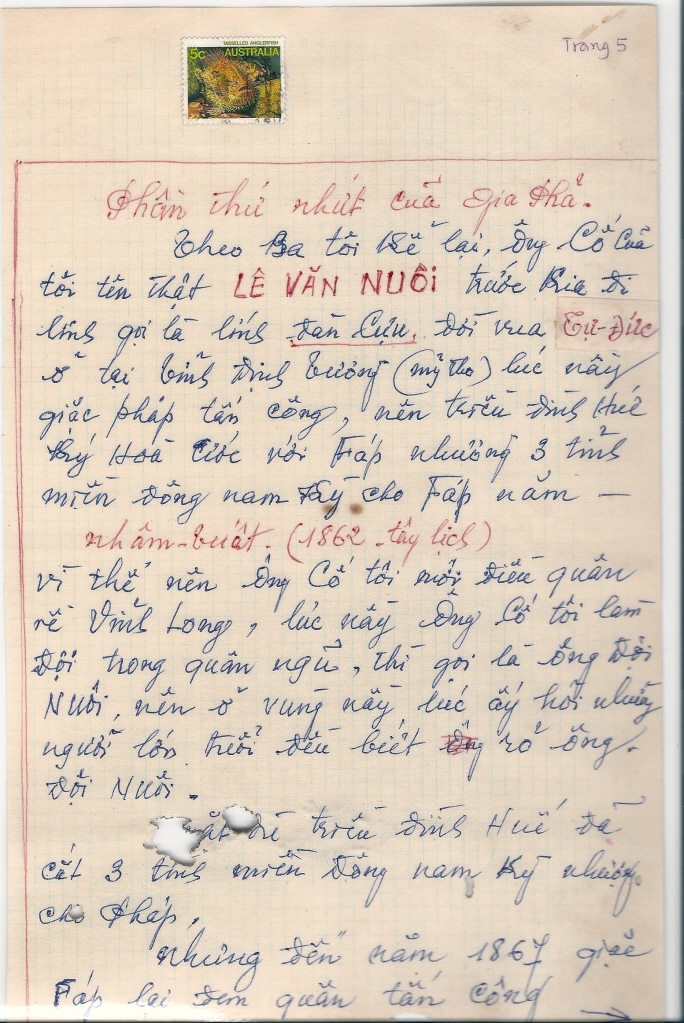 TASSELLED ANGLERFISH
5c AUSTRALIA
Trang 5
Phần thứ nhứt của Gia Phả.
Theo Ba tôi kể lại, Ông Cố của
tôi tên thật LÊ VĂN NUÔI trước kia đi
lính gọi là lính đàn cựu, đời vua Tự-Đức
ở tại tỉnh Định Tường (mỹ tho) lúc nầy
giặc pháp tấn công, nên triều đình Huế
ký Hoà ước với Fáp nhường 3 tỉnh
miền đông nam kỳ cho Fáp năm —
nhâm-tuất. (1862 tây lịch)
vì thế nên Ông Cố tôi mới điều quân
về Vĩnh Long, lúc nầy Ông Cố tôi làm
Đội trong quân ngũ, thì gọi là ông Đội
NUÔI, nên ở vùng nầy lúc ấy hỏi những
người lớn tuổi đều biết rõ ông.
Đội NUÔI.
triều đình Huế đã
cắt 3 tỉnh miền đông nam kỳ nhường
cho Pháp,
nhưng đến năm 1867 giặc
Fáp lại đem quân tấn công →